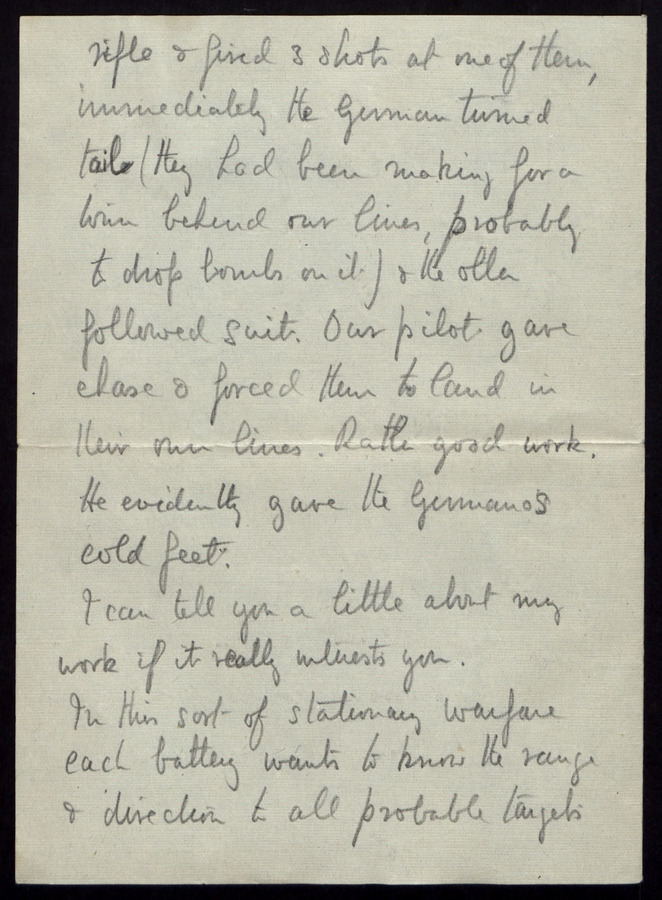 rifle & fired 3 shots at one of them,
immediately the German turned
tail (they had been making for a
town behind our lines, probably
to drop bombs on it) & the other
followed suit. Our pilot gave
chase & forced them to land in
their own lines. Rather good work.
He evidently gave the Germans
cold feet.
I can tell you a little about my
work if it really interests you.
In this sort of stationary warfare
each battery wants to know the range
& direction to all probable targets